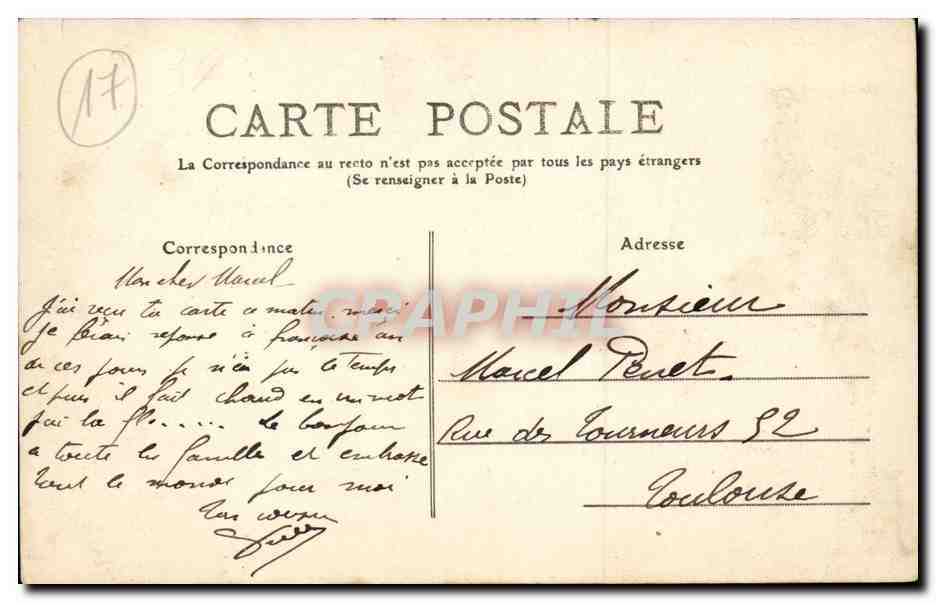 17
CARTE POSTALE
La Correspondance au recto n'est pas acceptée par tous les pays étrangers
(Se renseigner à la Poste)
Correspondance
Mon cher Marcel
J'ai reçu ta carte ce matin. merci
je ferai reponse à françoise un
de ces jours je n'ai pas le temps
et puis il fait chaud en un mot
j'ai la fl...... Le bonjour
a toute la famille et embrasse
tout le monde pour moi
Ton cousin
Adresse
Monsieur
Marcel Penet.
Rue des Tourneurs 52
Toulouse
CPAPHIL